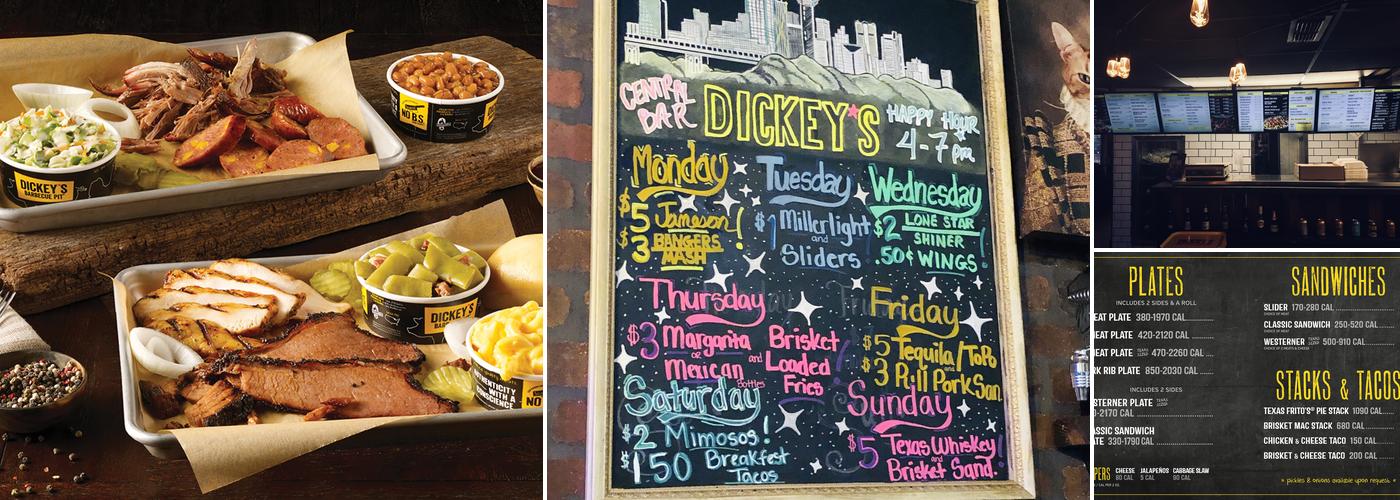 NO B.S.
DICKEY'S
BARBECUE PIT
DICKEY'S
AUTHENTICITY
WITH A
CONSCIENCE
NO
CENTRAL
BAR
DICKEY'S
HAPPY HOUR
4-7 pm
Monday
$5 Jameson!
$3 BANGERS
MASH
Tuesday
$1 Millerlight
and
Sliders
Wednesday
$2 LONE STAR
SHINER
.50¢ WINGS!
Thursday
$3 Margarita
or
Mexican
Bottles
and
Brisket
Loaded
Fries
Friday
$5 Tequila/ToPo
$3 Pull Pork San
Saturday
$2 Mimosas!
$1.50 Breakfast
Tacos
Sunday
$5 Texas Whiskey!
and
Brisket Sand.
PLATES
INCLUDES 2 SIDES & A ROLL
EAT PLATE 380-1970 CAL
EAT PLATE 420-2120 CAL
EAT PLATE 470-2260 CAL
RK RIB PLATE 850-2030 CAL
INCLUDES 2 SIDES
STERNER PLATE
0-2170 CAL
ASSIC SANDWICH
ATE 330-1790 CAL
PERS CHEESE 80 CAL JALAPEÑOS 5 CAL CABBAGE SLAW 90 CAL
SANDWICHES
SLIDER 170-280 CAL
CHOICE OF MEAT
CLASSIC SANDWICH 250-520 CAL
CHOICE OF MEAT
WESTERNER 500-910 CAL
CHOICE OF 2 MEATS & CHEESE
STACKS & TACOS
TEXAS FRITO'S® PIE STACK 1090 CAL
BRISKET MAC STACK 680 CAL
CHICKEN & CHEESE TACO 150 CAL
BRISKET & CHEESE TACO 200 CAL
* pickles & onions available upon request